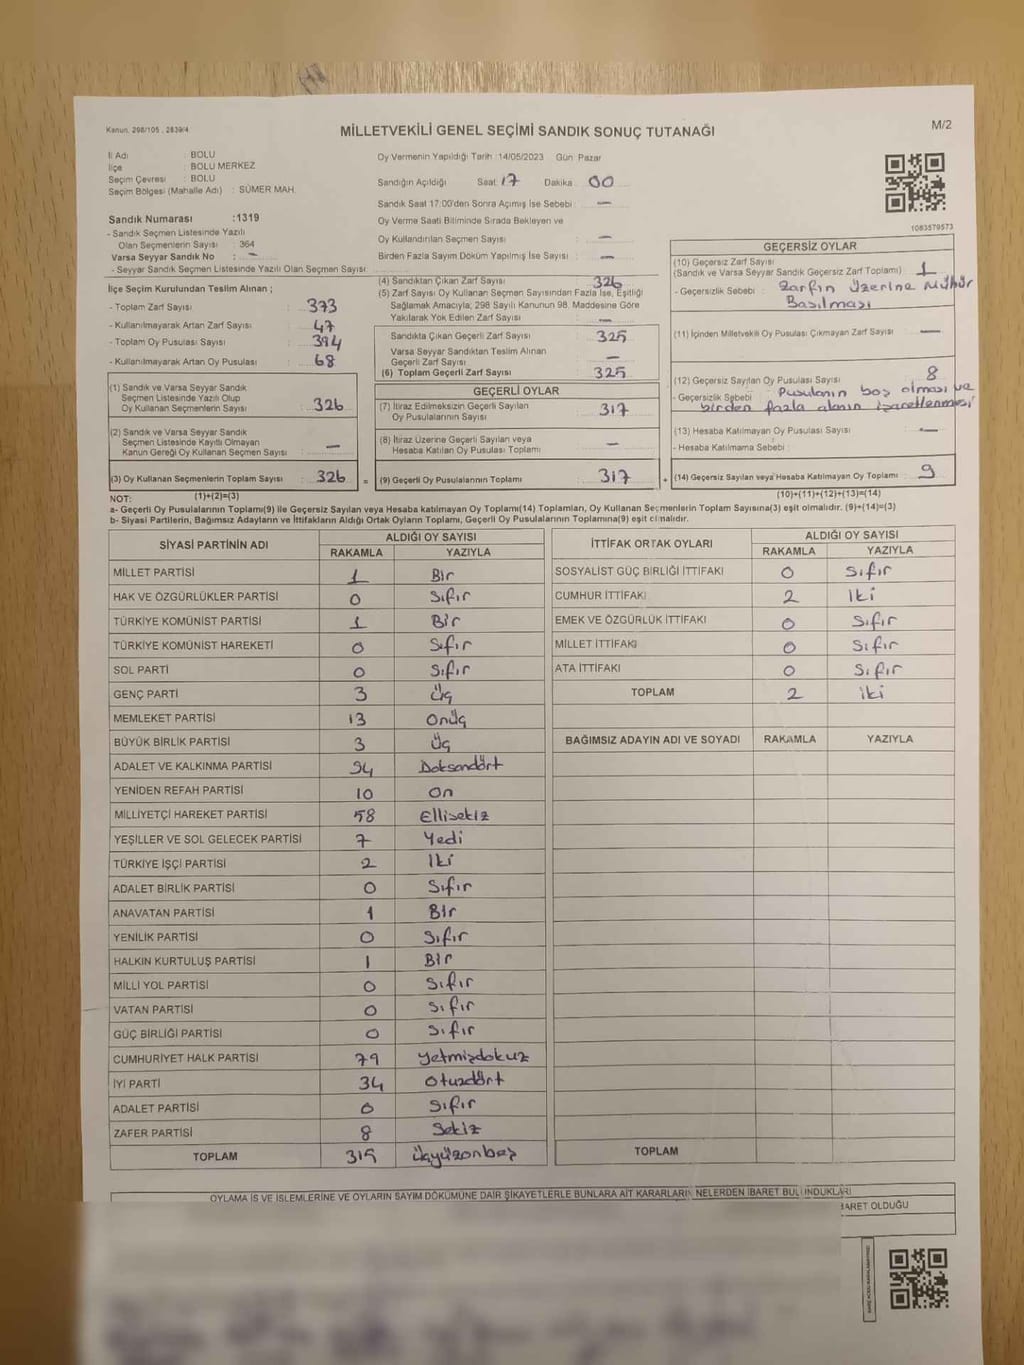 Kanun. 298/105 , 2839/4
MİLLETVEKİLİ GENEL SEÇİMİ SANDIK SONUÇ TUTANAĞI
M/2
İl Adı : BOLU
İlçe : BOLU MERKEZ
Seçim Çevresi : BOLU
Seçim Bölgesi (Mahalle Adı) : SÜMER MAH.
Sandık Numarası :1319
- Sandık Seçmen Listesinde Yazılı
Olan Seçmenlerin Sayısı : 364
Varsa Seyyar Sandık No : -
- Seyyar Sandık Seçmen Listesinde Yazılı Olan Seçmen Sayısı:
Oy Vermenin Yapıldığı Tarih :14/05/2023 Gün: Pazar
Sandığın Açıldığı Saat: 17 Dakika: 00
Sandık Saat 17:00'den Sonra Açımış İse Sebebi : —
Oy Verme Saati Bitiminde Sırada Bekleyen ve
Oy Kullandırılan Seçmen Sayısı : —
Birden Fazla Sayım Döküm Yapılmış İse Sayısı : —
1083579573
İlçe Seçim Kurulundan Teslim Alınan ;
- Toplam Zarf Sayısı : 373
- Kullanılmayarak Artan Zarf Sayısı : 47
- Toplam Oy Pusulası Sayısı : 394
- Kullanılmayarak Artan Oy Pusulası : 68
(1) Sandık ve Varsa Seyyar Sandık
Seçmen Listesinde Yazılı Olup
Oy Kullanan Seçmenlerin Sayısı : 326
(2) Sandık ve Varsa Seyyar Sandık
Seçmen Listesinde Kayıtlı Olmayan
Kanun Gereği Oy Kullanan Seçmen Sayısı : —
(3) Oy Kullanan Seçmenlerin Toplam Sayısı : 326
(4) Sandıktan Çıkan Zarf Sayısı : 326
(5) Zarf Sayısı Oy Kullanan Seçmen Sayısından Fazla İse, Eşitliği
Sağlamak Amacıyla; 298 Sayılı Kanunun 98. Maddesine Göre
Yakılarak Yok Edilen Zarf Sayısı : —
Sandıkta Çıkan Geçerli Zarf Sayısı : 325
Varsa Seyyar Sandıktan Teslim Alınan
Geçerli Zarf Sayısı : —
(6) Toplam Geçerli Zarf Sayısı : 325
GEÇERLİ OYLAR
(7) İtiraz Edilmeksizin Geçerli Sayılan
Oy Pusulalarının Sayısı : 317
(8) İtiraz Üzerine Geçerli Sayılan veya
Hesaba Katılan Oy Pusulası Toplamı : —
= (9) Geçerli Oy Pusulalarının Toplamı : 317
GEÇERSİZ OYLAR
(10) Geçersiz Zarf Sayısı
(Sandık ve Varsa Seyyar Sandık Geçersiz Zarf Toplamı) : 1
- Geçersizlik Sebebi : Zarfın üzerine mühür
Basılması
(11) İçinden Milletvekili Oy Pusulası Çıkmayan Zarf Sayısı : —
(12) Geçersiz Sayılan Oy Pusulası Sayısı : 8
- Geçersizlik Sebebi : Pusulanın boş olması ve
birden fazla alanın işaretlenmesi
(13) Hesaba Katılmayan Oy Pusulası Sayısı : —
- Hesaba Katılmama Sebebi :
+ (14) Geçersiz Sayılan veya Hesaba Katılmayan Oy Toplamı : 9
NOT: (1)+(2)=(3) (10)+(11)+(12)+(13)=(14)
a- Geçerli Oy Pusulaların Toplamı(9) ile Geçersiz Sayılan veya Hesaba katılmayan Oy Toplamı(14) Toplamları, Oy Kullanan Seçmenlerin Toplam Sayısına(3) eşit olmalıdır. (9)+(14)=(3)
b- Siyasi Partilerin, Bağımsız Adayların ve İttifakların Aldığı Ortak Oyların Toplamı, Geçerli Oy Pusulalarının Toplamına(9) eşit olmalıdır.
SİYASİ PARTİNİN ADI ALDIĞI OY SAYISI
RAKAMLA YAZIYLA
MİLLET PARTİSİ 1 Bir
HAK VE ÖZGÜRLÜKLER PARTİSİ 0 Sıfır
TÜRKİYE KOMÜNİST PARTİSİ 1 Bir
TÜRKİYE KOMÜNİST HAREKETİ 0 Sıfır
SOL PARTİ 0 Sıfır
GENÇ PARTİ 3 Üç
MEMLEKET PARTİSİ 13 Onüç
BÜYÜK BİRLİK PARTİSİ 3 Üç
ADALET VE KALKINMA PARTİSİ 94 Doksandört
YENİDEN REFAH PARTİSİ 10 On
MİLLİYETÇİ HAREKET PARTİSİ 58 Ellisekiz
YEŞİLLER VE SOL GELECEK PARTİSİ 7 Yedi
TÜRKİYE İŞÇİ PARTİSİ 2 İki
ADALET BİRLİK PARTİSİ 0 Sıfır
ANAVATAN PARTİSİ 1 Bir
YENİLİK PARTİSİ 0 Sıfır
HALKIN KURTULUŞ PARTİSİ 1 Bir
MİLLİ YOL PARTİSİ 0 Sıfır
VATAN PARTİSİ 0 Sıfır
GÜÇ BİRLİĞİ PARTİSİ 0 Sıfır
CUMHURİYET HALK PARTİSİ 79 Yetmişdokuz
İYİ PARTİ 34 Otuzdört
ADALET PARTİSİ 0 Sıfır
ZAFER PARTİSİ 8 Sekiz
TOPLAM 315 Üçyüzonbeş
İTTİFAK ORTAK OYLARI ALDIĞI OY SAYISI
RAKAMLA YAZIYLA
SOSYALİST GÜÇ BİRLİĞİ İTTİFAKI 0 Sıfır
CUMHUR İTTİFAKI 2 İki
EMEK VE ÖZGÜRLÜK İTTİFAKI 0 Sıfır
MİLLET İTTİFAKI 0 Sıfır
ATA İTTİFAKI 0 Sıfır
TOPLAM 2 İki
BAĞIMSIZ ADAYIN ADI VE SOYADI RAKAMLA YAZIYLA
TOPLAM
OYLAMA İŞ VE İŞLEMLERİNE VE OYLARIN SAYIM DÖKÜMÜNE DAİR ŞİKAYETLERLE BUNLARA AİT KARARLARIN NELERDEN İBARET BULUNDUKLARI
BARET OLDUĞU